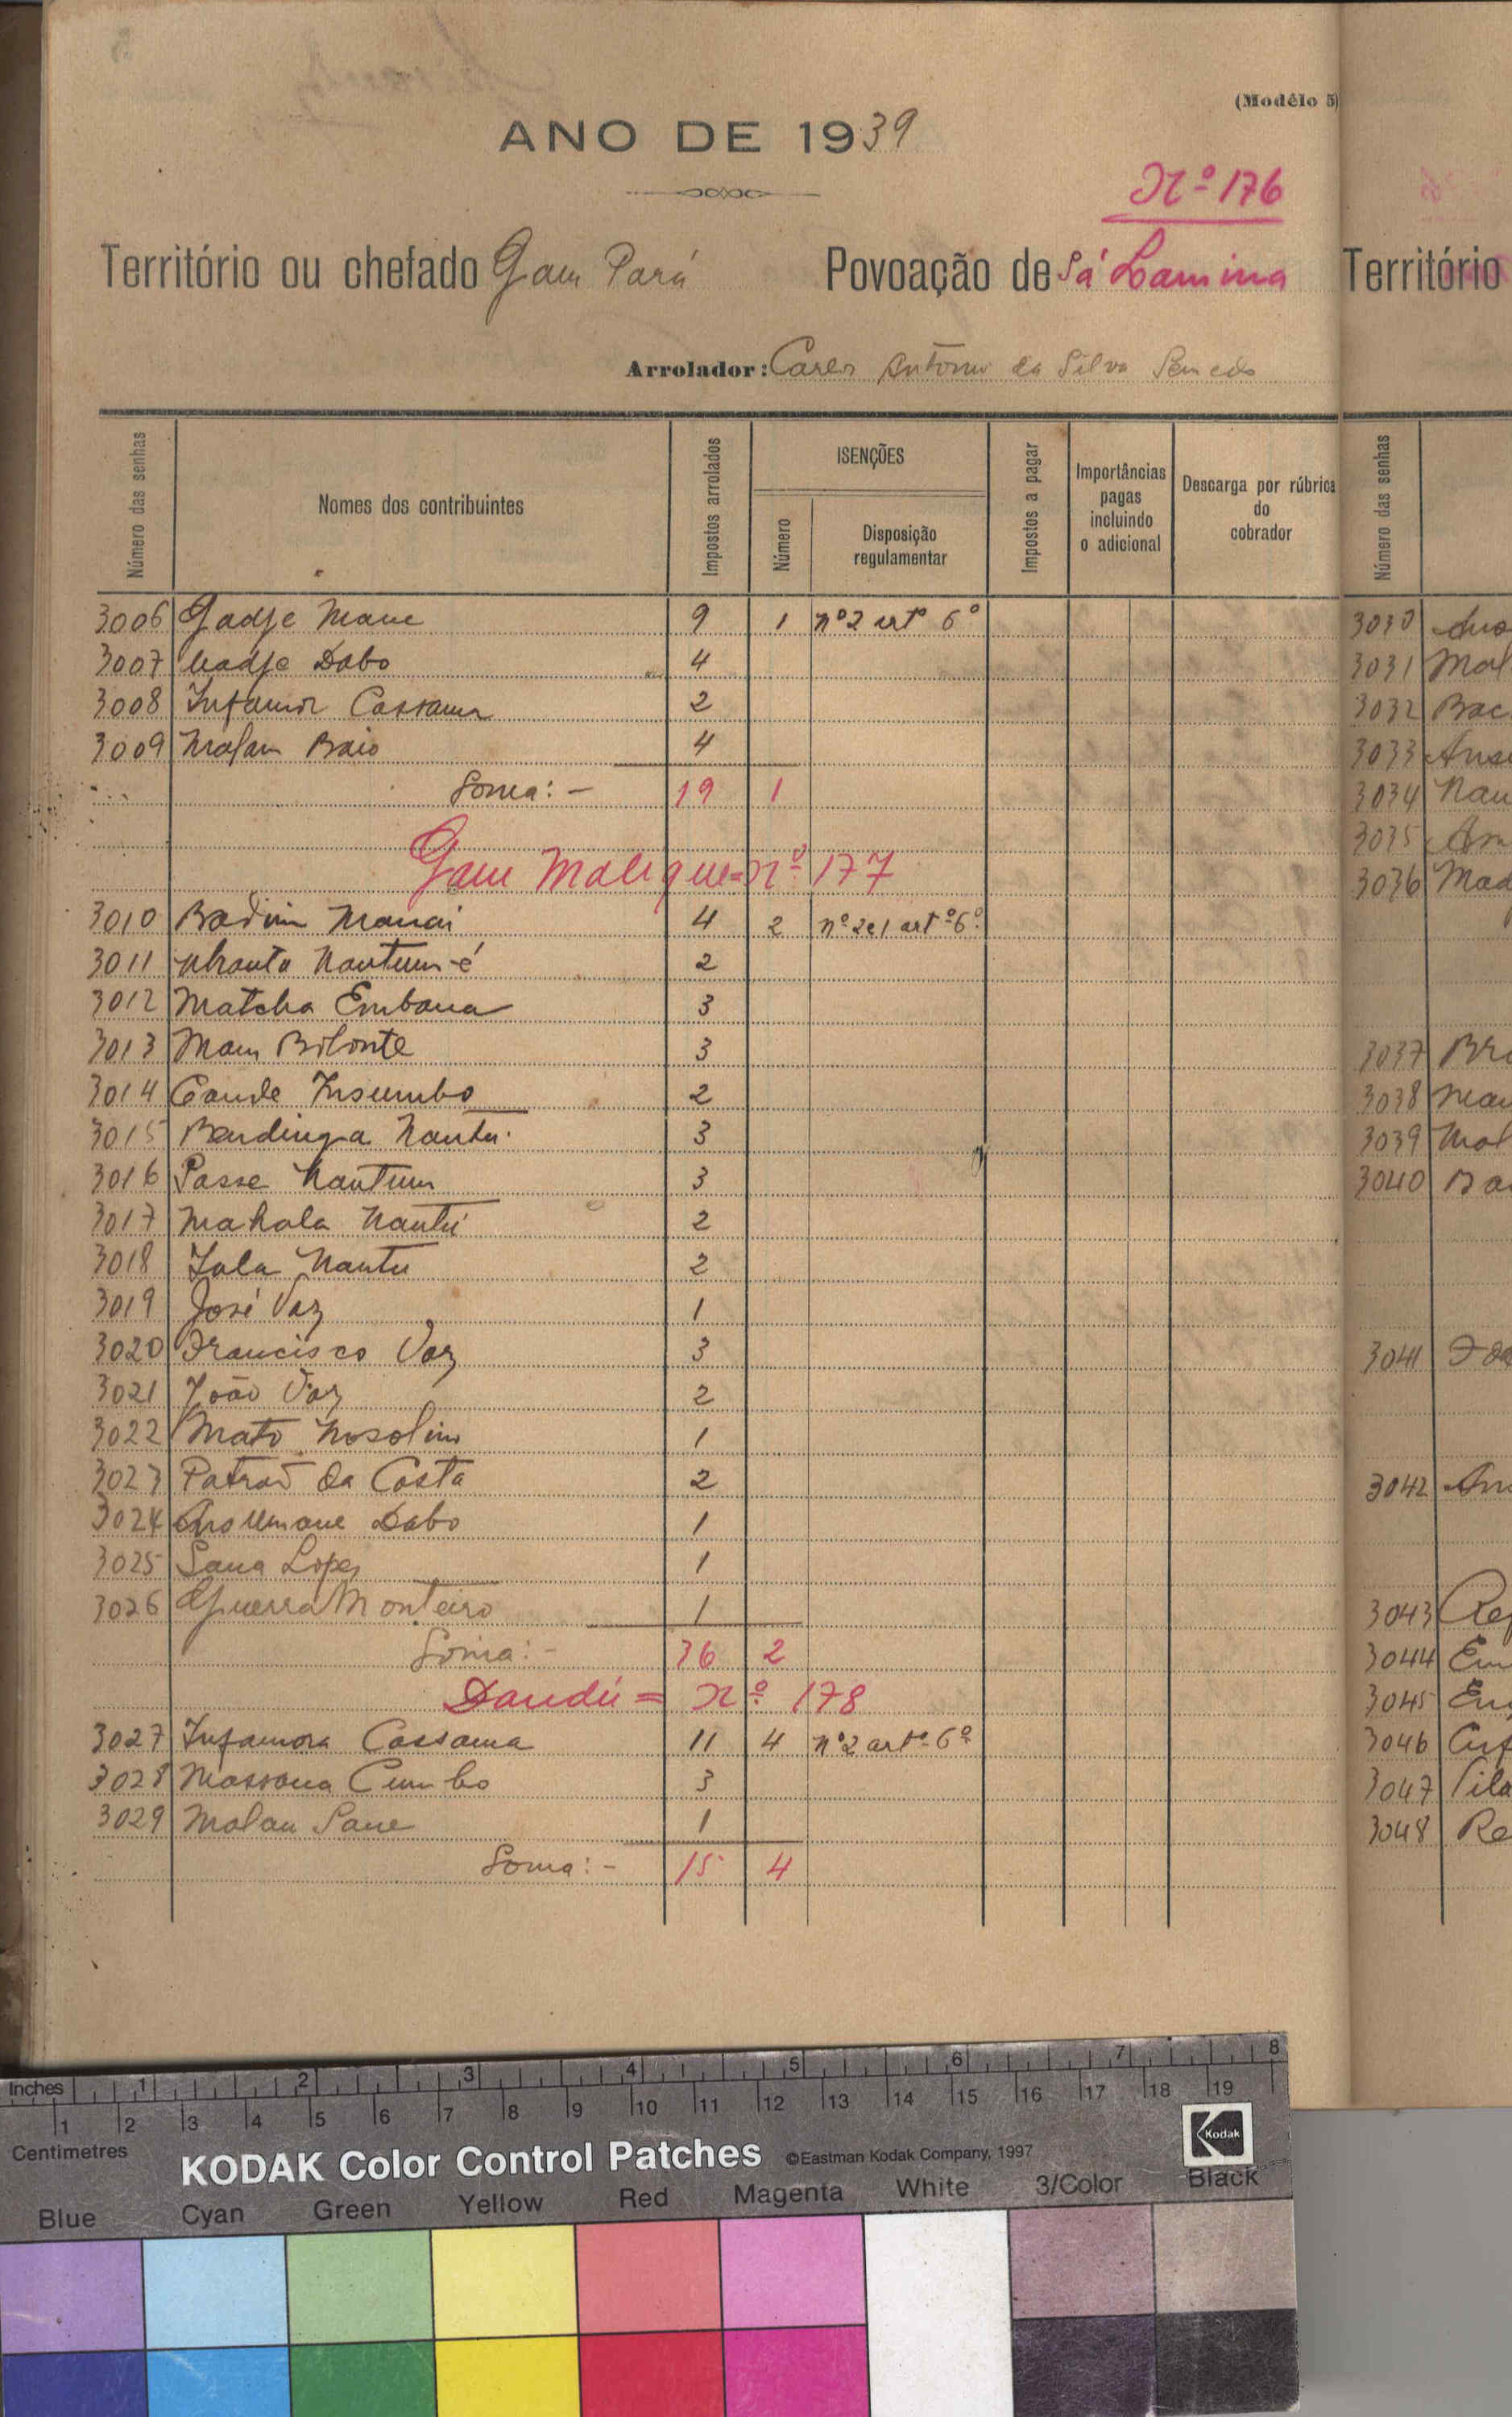 (Modêlo 5)
ANO DE 1939
Nº 176
Território ou chefado Gam Pará Povoação de Sá Lamina
Arrolador: Carlos António da Silva Semedo
Número das senhas
Nomes dos contribuintes
Impostos arrolados
ISENÇÕES
Número
Disposição regulamentar
Impostos a pagar
Importâncias pagas incluindo o adicional
Descarga por rúbrica do cobrador
3006 Gadje Mane 9 1 nº 2 artº 6º
3007 Dabo 4
3008 Infamor Cassama 2
3009 Malam Baio 4
Soma: - 19 1
Gam Malique = nº 177
3010 Badim Manai 4 2 nº 2 e 1 artº 6º
3011 Nantum-é 2
3012 Matcha Embana 3
3013 Mam Bilonte 3
3014 Insumbo 2
3015 Bendinga Nantu 3
3016 Passe Nantum 3
3017 Mahala Nantu 2
3018 Iala Nantu 2
3019 José Vaz 1
3020 Francisco Vaz 3
3021 João Vaz 2
3022 Mato Nosolini 1
3023 Patrão da Costa 2
3024 Dabo 1
3025 Sana Lopes 1
3026 Guerra Monteiro 1
Soma: - 36 2
Dandú = nº 178
3027 Infamora Cassama 11 4 nº 2 artº 6º
3028 Massana Cumbo 3
3029 Malan Sane 1
Soma: - 15 4
Território
Número das senhas
3030
3031 Mal
3032 Bac
3033
3034 Nau
3035
3036 Mad
3037 Bra
3038 Man
3039 Mal
3040 Ba
3041
3042
3043
3044
3045
3046
3047
3048 Re
Inches 1 2 3 4 5 6 7 8
1 2 3 4 5 6 7 8 9 10 11 12 13 14 15 16 17 18 19
Centimetres
KODAK Color Control Patches ©Eastman Kodak Company, 1997 Kodak
Blue Cyan Green Yellow Red Magenta White 3/Color Black